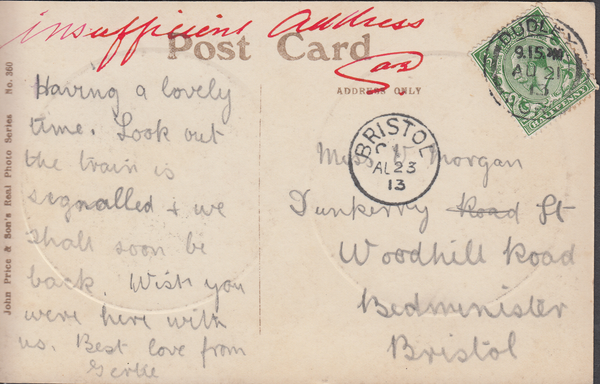 insufficient Address
Post Card
ADDRESS ONLY
John Price & Son's Real Photo Series No. 360
DUDLEY
9.15 PM
AU 21
13
HALFPENNY
BRISTOL
C
AU 23
13
Having a lovely
time. Look out
the train is
signalled & we
shall soon be
back. Wish you
were here with
us. Best love from
Miss V Morgan
Dunkerry Road St
Woodhill Road
Bedminister
Bristol